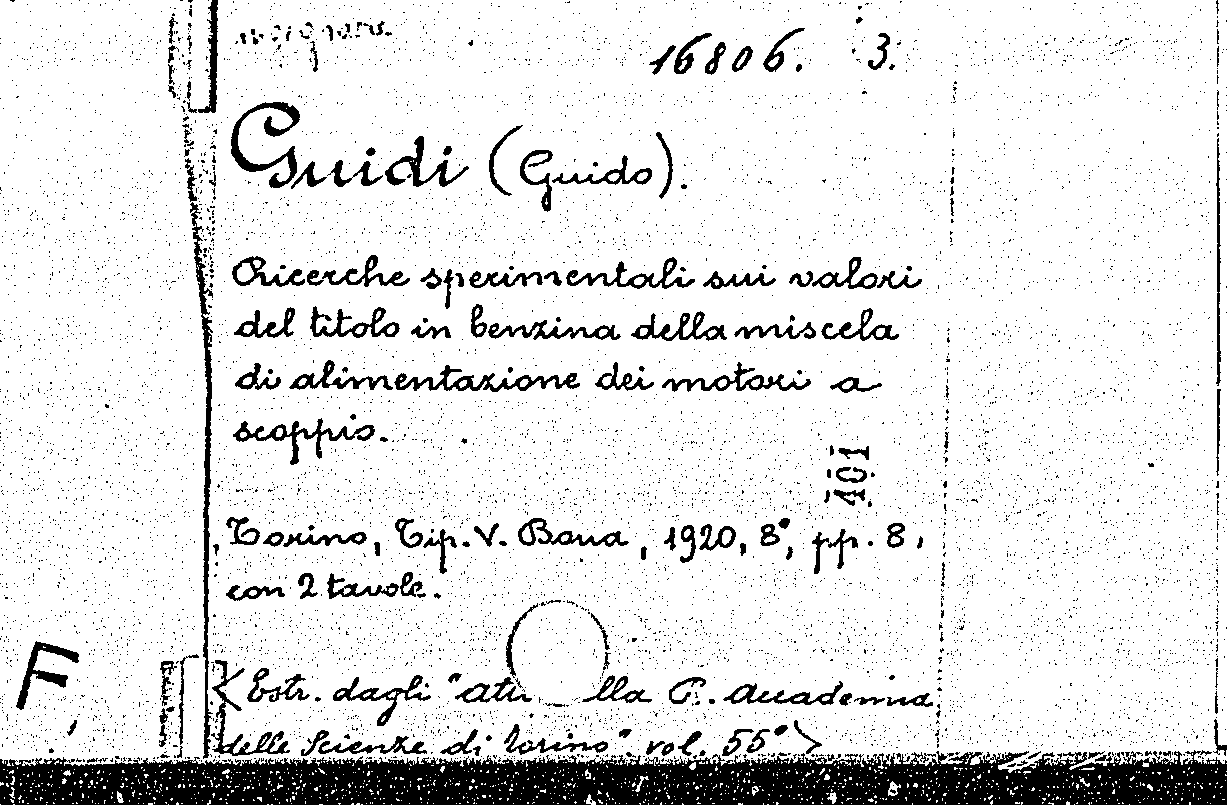 16806. 3.
Guidi (Guido).
Ricerche sperimentali sui valori
del titolo in benzina della miscela
di alimentazione dei motori a
scoppio.
101
Torino, Tip. V. Bona, 1920, 8°, pp. 8,
con 2 tavole.
F,
<Estr. dagli "atti lla R. Accademia
delle Scienze di Torino". vol. 55°>